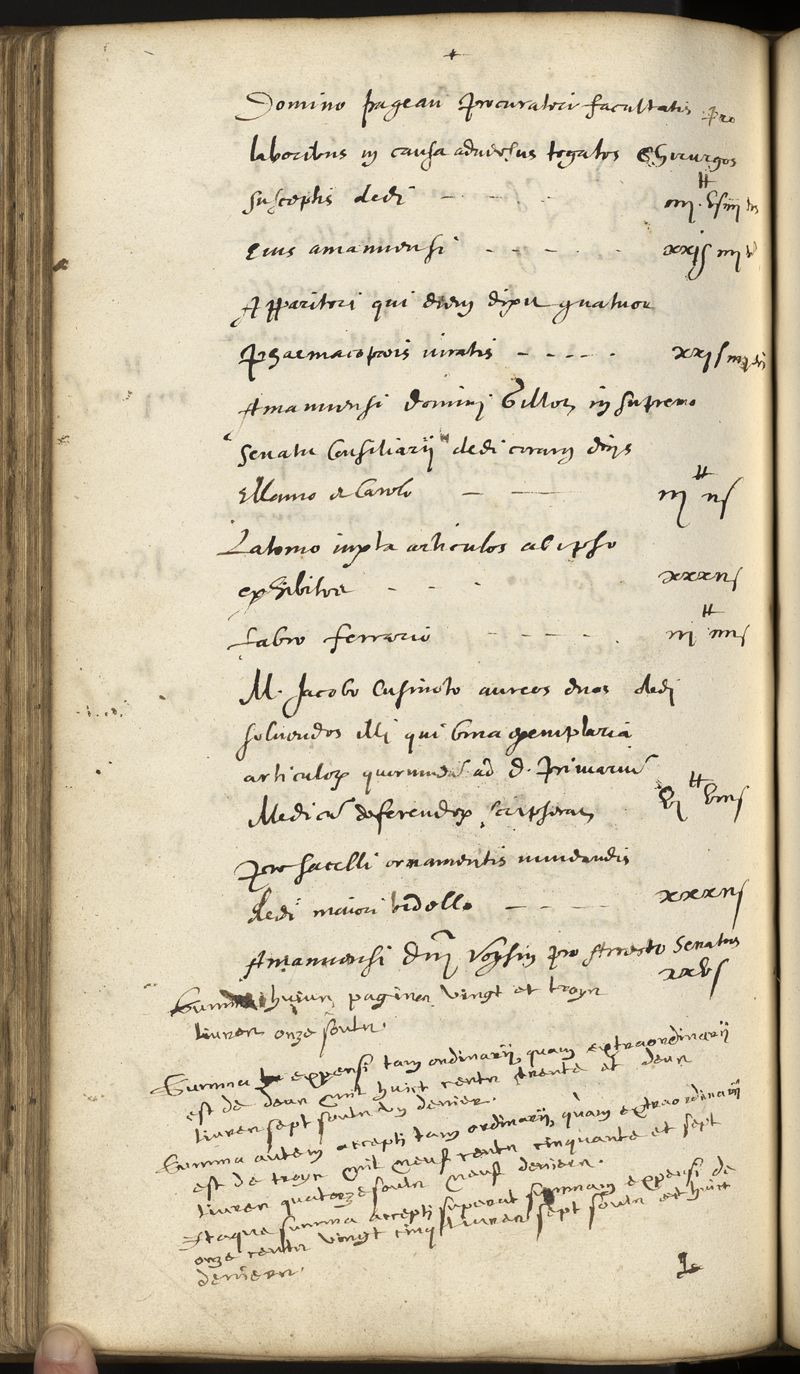 Domino pageau procuratori facultatis pro
laboribus in causa adversus togatos Chirurgos
susceptis dedi
Eius amanuensi
Apparitori qui diem dixit quatuor
pharmacopoeis iuratis
Amanuensi domini Gillot in supremo
Senatu Consiliarij dedi coram dnis
Ellamo et Carolo
Latomo iuxta articulos ab ipso
exhibitos xxxiis
fabro ferrario
M. Jacobo Cusinoto aureos duos dedi
solvendos illi qui bina exemplaria
articulor ad D. Primariū
Medicū deferendor scripserat
Pro sacelli ornamentis mundandis
dedi maiori bidello xxxiis
Amanuensi dni Voysin pro Arresto Senatus
xxvs
Summa huius paginae vingt et troys
livres onze soulz.
Summa expensi tam ordinarij, quam extraordinarij
est de deux mil huict centz trente et deux
livres sept soulz un denier.
Summa autem accepti tam ordinarij, quam extraordinarij
est de troys mil neuf centz cinquante et sept
livres quatorze soulz neuf deniers.
Itaque summa accepti superat summam expensi de
onze centz vingt cinq livres sept soulz et huict
deniers.